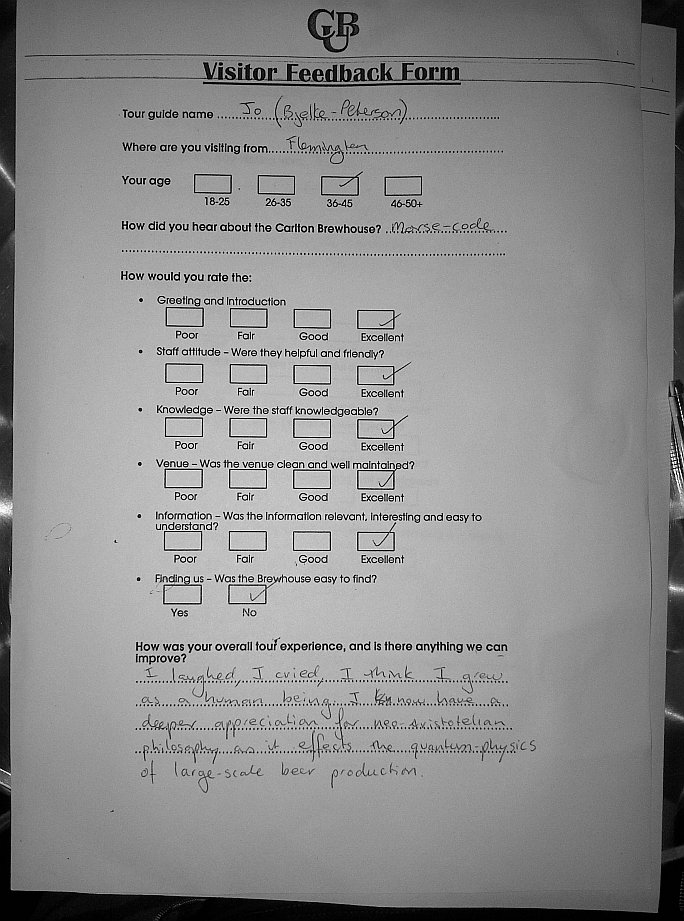 CUB
Visitor Feedback Form
Tour guide name Jo (Bjelke-Peterson)
Where are you visiting from Flemington
Your age
18-25 26-35 36-45 46-50+
How did you hear about the Carlton Brewhouse? Morse-code
How would you rate the:
• Greeting and Introduction
Poor Fair Good Excellent
• Staff attitude - Were they helpful and friendly?
Poor Fair Good Excellent
• Knowledge - Were the staff knowledgeable?
Poor Fair Good Excellent
• Venue - Was the venue clean and well maintained?
Poor Fair Good Excellent
• Information - Was the information relevant, interesting and easy to
understand?
Poor Fair Good Excellent
• Finding us - Was the Brewhouse easy to find?
Yes No
How was your overall tour experience, and is there anything we can
improve?
I laughed, I cried, I think I grew
as a human being. I know have a
deeper appreciation for neo-Aristotelian
philosophy as it effects the quantum-physics
of large-scale beer production.